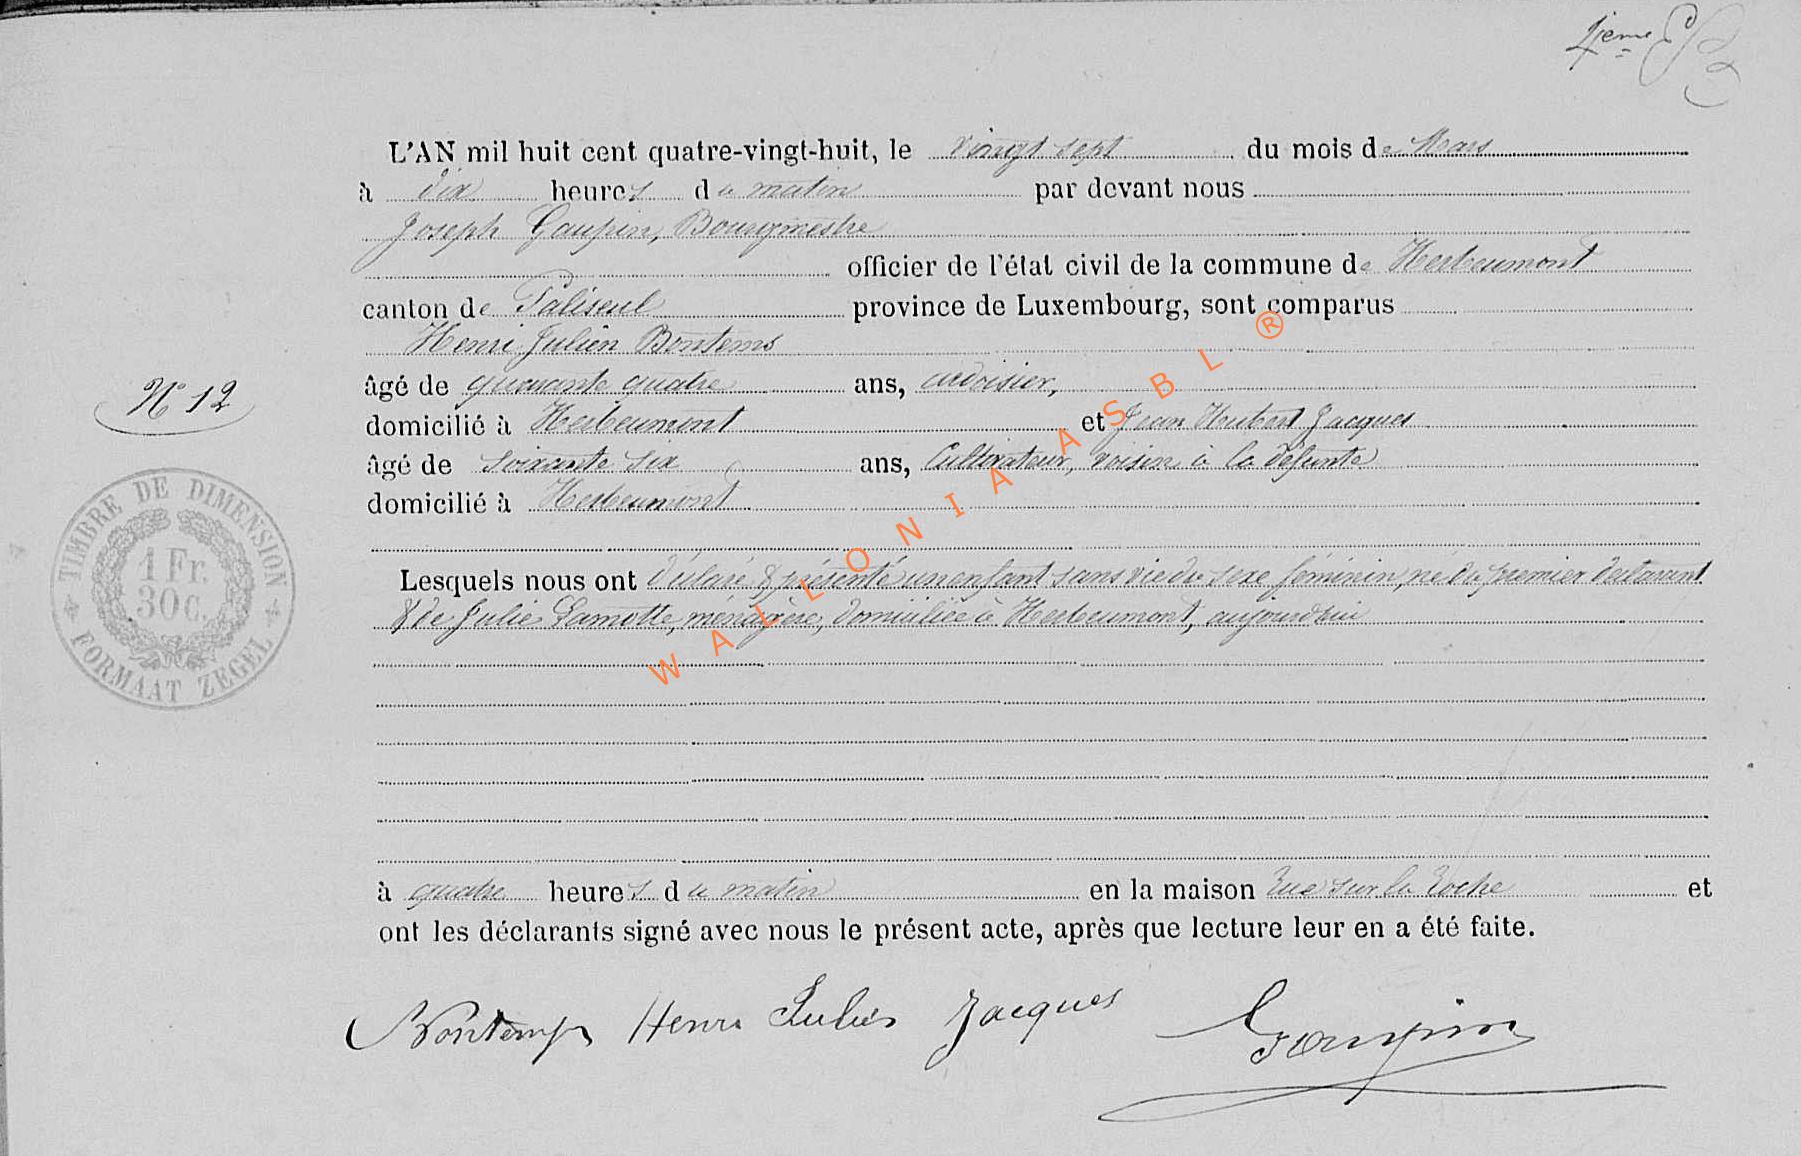 4ième
L'AN mil huit cent quatre-vingt-huit, le vingt sept du mois de Mars
à dix heures du matin par devant nous
Joseph Goupin, Bourgmestre
officier de l'état civil de la commune de Herbeumont
canton de Paliseul province de Luxembourg, sont comparus
Henri Julien Bontems
âgé de quarante quatre ans, ardoisier,
N° 12
domicilié à Herbeumont et Jean Hubert Jacques
âgé de soixante six ans, Cultivateur, voisin à la défunte
domicilié à Herbeumont
TIMBRE DE DIMENSION
1 Fr.
30 c.
FORMAAT ZEGEL
Lesquels nous ont déclaré & présenté un enfant sans vie du sexe féminin, né du premier déclarant
& de Julie Lamotte, ménagère, domiciliée à Herbeumont, aujourd'hui
à quatre heures du matin en la maison rue sur la roche et
ont les déclarants signé avec nous le présent acte, après que lecture leur en a été faite.
Bontemps Henri Julien Jacques Goupin
WALLONIA ASBL ®